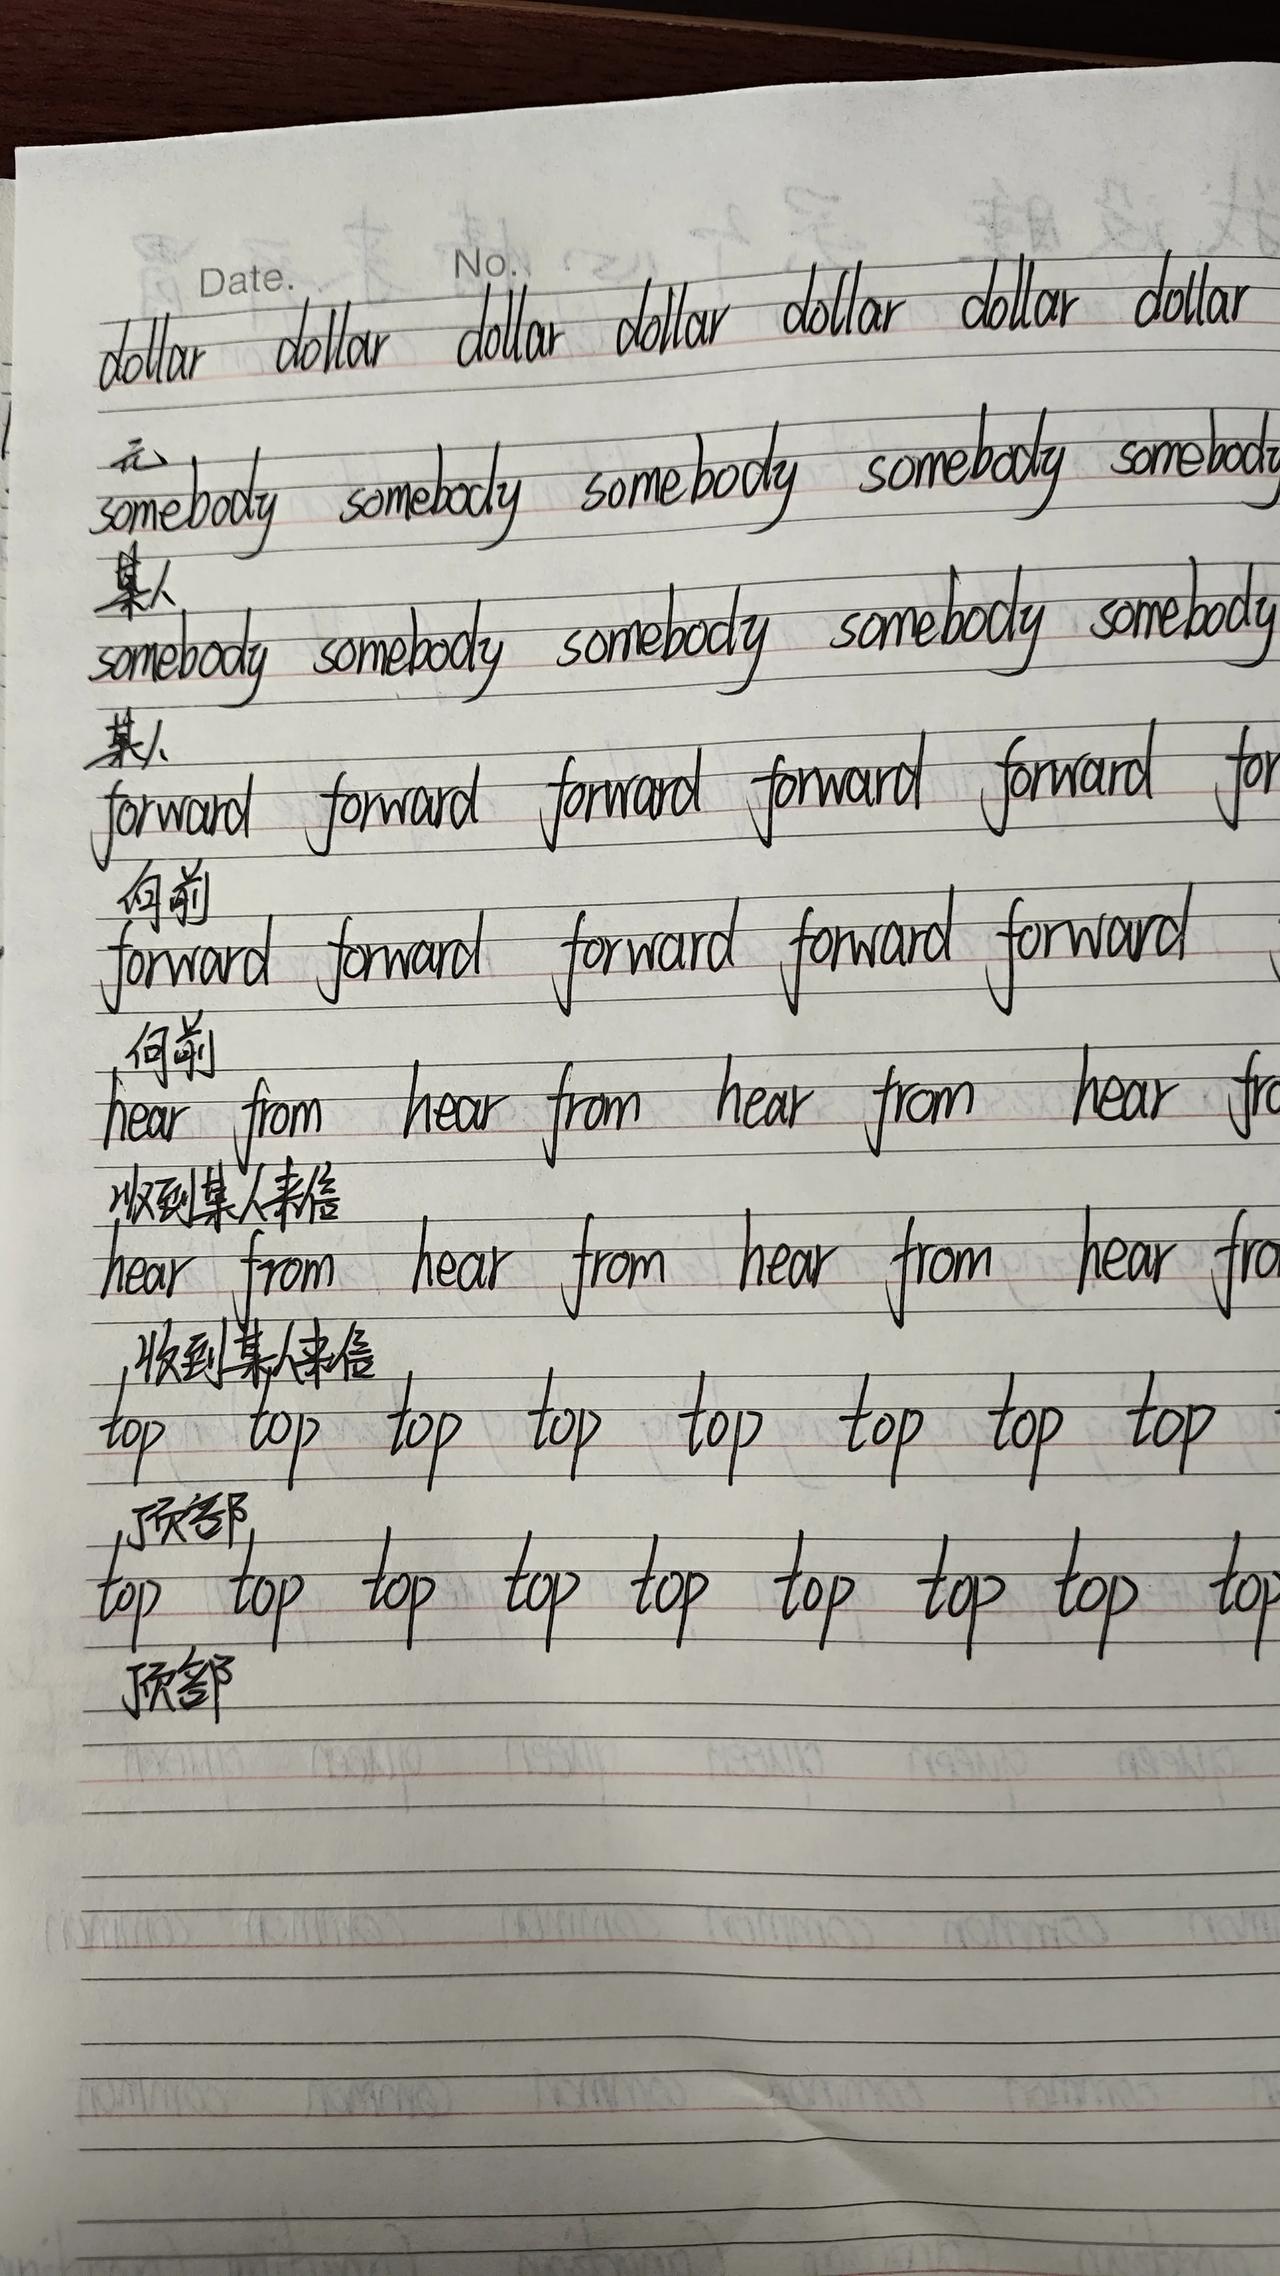 Date. No.
dollar dollar dollar dollar dollar dollar dollar
元
somebody somebody somebody somebody somebody
某人
somebody somebody somebody somebody somebody
某人
forward forward forward forward forward for
向前
forward forward forward forward forward
向前
hear from hear from hear from hear fro
收到某人来信
hear from hear from hear from hear fro
收到某人来信
top top top top top top top top
顶部
top top top top top top top top top
顶部